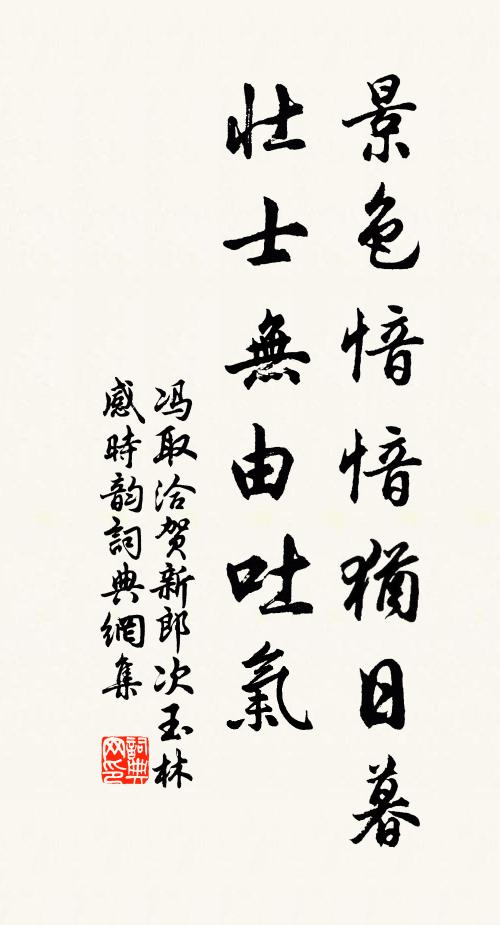 景色愔愔猶日暮
壮士無由吐氣
冯取洽贺新郎次玉林
感時韵詞典網集
詞典网印